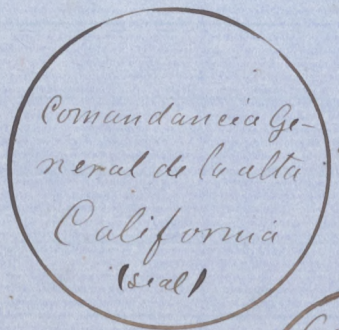 Comandancia Ge-
neral de la alta
California
(seal)